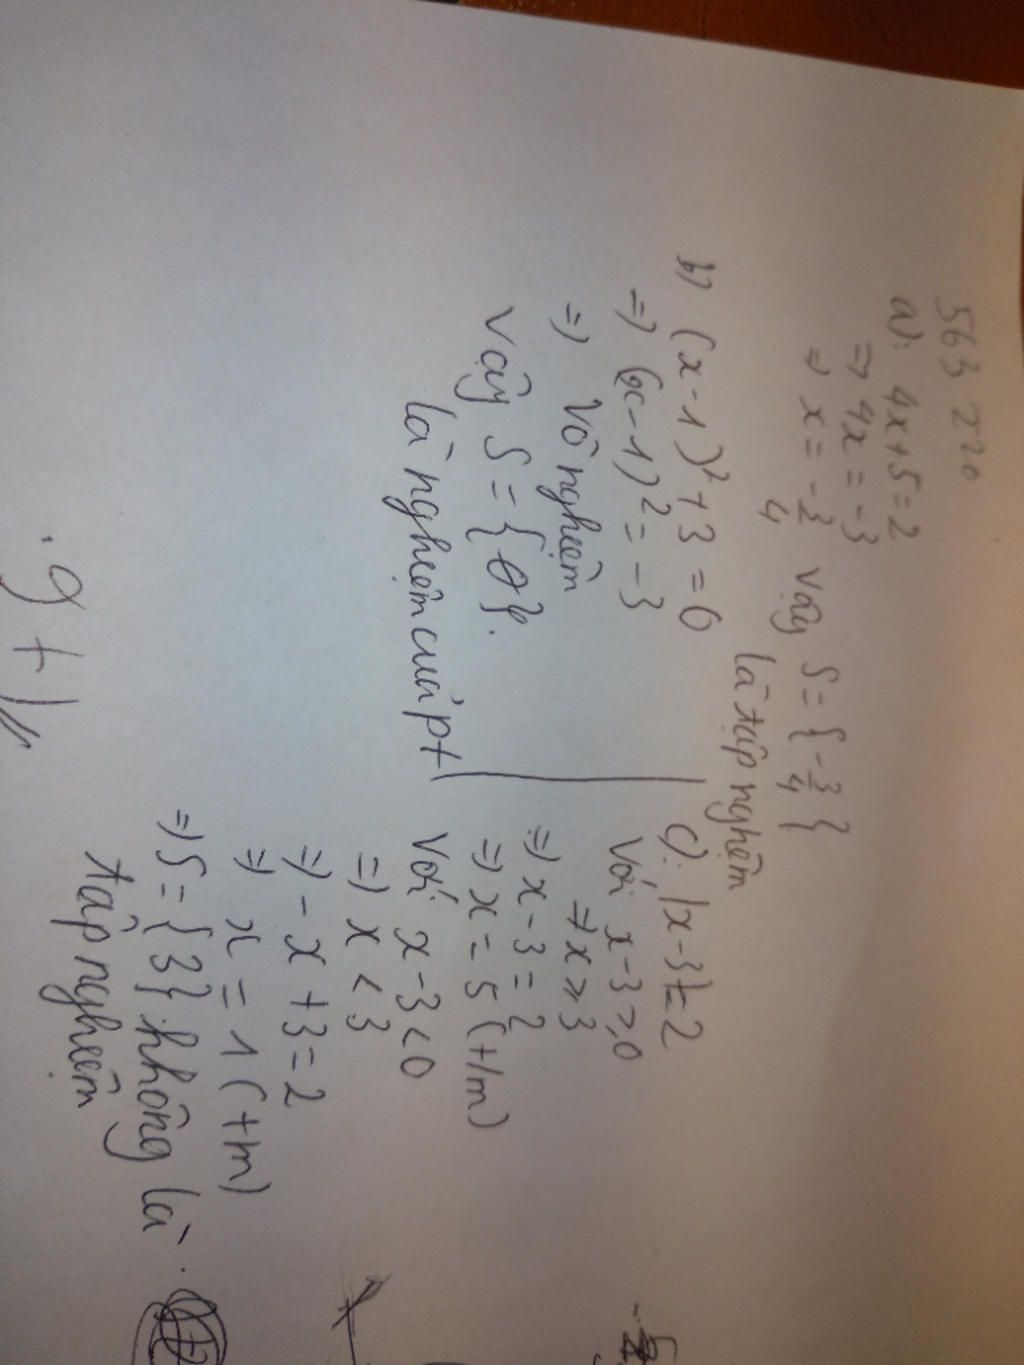 563 220
a): 4x+5=2
=> 4x = -3
=> x = -3/4 vậy S = { -3/4 }
là tập nghiệm
b) (x-1)² + 3 = 0
=> (x-1)² = -3
=> Vô nghiệm
Vậy S = { Ø }.
là nghiệm của pt
c): |x-3|=2
Với x-3 ⩾ 0
=> x ⩾ 3
=> x-3 = 2
=> x = 5 (t/m)
Với x-3 < 0
=> x < 3
=> -x+3 = 2
=> x = 1 (t/m)
=> S = { 3 } không là
tập nghiệm